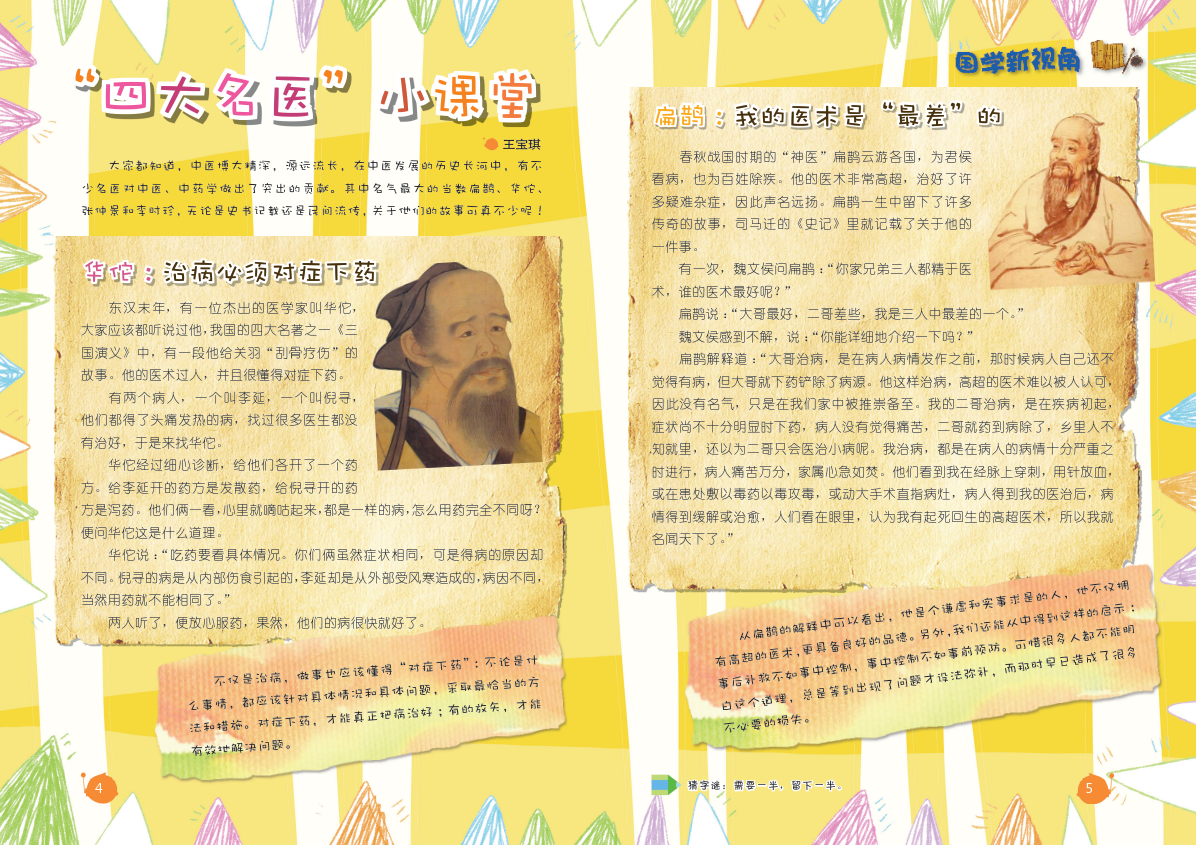 “四大名医”小课堂
王宝琪
大家都知道，中医博大精深，源远流长，在中医发展的历史长河中，有不
少名医对中医、中药学做出了突出的贡献。其中名气最大的当数扁鹊、华佗、
张仲景和李时珍，无论是史书记载还是民间流传，关于他们的故事可真不少呢！
华佗：治病必须对症下药
东汉末年，有一位杰出的医学家叫华佗，
大家应该都听说过他，我国的四大名著之一《三
国演义》中，有一段他给关羽“刮骨疗伤”的
故事。他的医术过人，并且很懂得对症下药。
有两个病人，一个叫李延，一个叫倪寻，
他们都得了头痛发热的病，找过很多医生都没
有治好，于是来找华佗。
华佗经过细心诊断，给他们各开了一个药
方。给李延开的药方是发散药，给倪寻开的药
方是泻药。他们俩一看，心里就嘀咕起来，都是一样的病，怎么用药完全不同呀？
便问华佗这是什么道理。
华佗说：“吃药要看具体情况。你们俩虽然症状相同，可是得病的原因却
不同。倪寻的病是从内部伤食引起的，李延却是从外部受风寒造成的，病因不同，
当然用药就不能相同了。”
两人听了，便放心服药，果然，他们的病很快就好了。
不仅是治病，做事也应该懂得“对症下药”：不论是什
么事情，都应该针对具体情况和具体问题，采取最恰当的方
法和措施。对症下药，才能真正把病治好；有的放矢，才能
有效地解决问题。
4
国学新视角
扁鹊：我的医术是“最差”的
春秋战国时期的“神医”扁鹊云游各国，为君侯
看病，也为百姓除疾。他的医术非常高超，治好了许
多疑难杂症，因此声名远扬。扁鹊一生中留下了许多
传奇的故事，司马迁的《史记》里就记载了关于他的
一件事。
有一次，魏文侯问扁鹊：“你家兄弟三人都精于医
术，谁的医术最好呢？”
扁鹊说：“大哥最好，二哥差些，我是三人中最差的一个。”
魏文侯感到不解，说：“你能详细地介绍一下吗？”
扁鹊解释道：“大哥治病，是在病人病情发作之前，那时候病人自己还不
觉得有病，但大哥就下药铲除了病源。他这样治病，高超的医术难以被人认可，
因此没有名气，只是在我们家中被推崇备至。我的二哥治病，是在疾病初起，
症状尚不十分明显时下药，病人没有觉得痛苦，二哥就药到病除了，乡里人不
知就里，还以为二哥只会医治小病呢。我治病，都是在病人的病情十分严重之
时进行，病人痛苦万分，家属心急如焚。他们看到我在经脉上穿刺，用针放血，
或在患处敷以毒药以毒攻毒，或动大手术直指病灶，病人得到我的医治后，病
情得到缓解或治愈，人们看在眼里，认为我有起死回生的高超医术，所以我就
名闻天下了。”
从扁鹊的解释中可以看出，他是个谦虚和实事求是的人，他不仅拥
有高超的医术，更具备良好的品德。另外，我们还能从中得到这样的启示：
事后补救不如事中控制，事中控制不如事前预防。可惜很多人都不能明
白这个道理，总是等到出现了问题才设法弥补，而那时早已造成了很多
不必要的损失。
猜字谜：需要一半，留下一半。
5